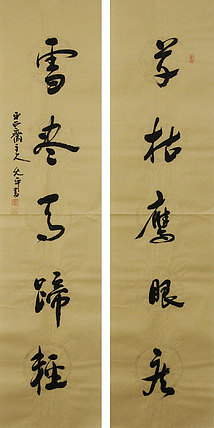 草枯鷹眼疾
雪盡馬蹄輕
齋主人